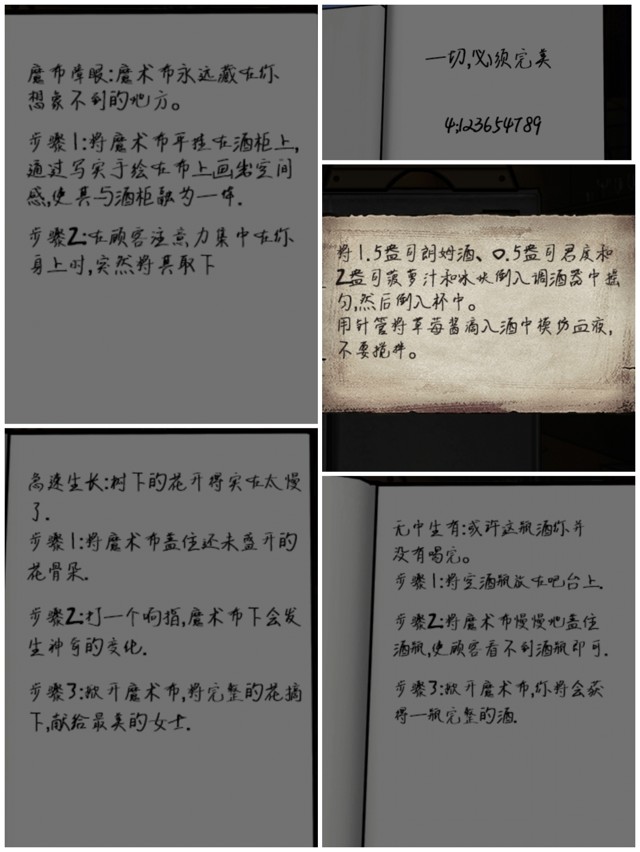 魔布障眼:魔术布永远藏在你
想象不到的地方。
步骤1:将魔术布平挂在酒柜上,
通过写实手绘在布上画出空间
感,使其与酒柜融为一体.
步骤2:在顾客注意力集中在你
身上时,突然将其取下
一切,必须完美
4:123654789
将1.5盎司朗姆酒、0.5盎司君度和
2盎司菠萝汁和冰块倒入调酒器中摇
匀,然后倒入杯中。
用针管将草莓酱滴入酒中模仿血液,
不要搅拌。
高速生长:树下的花开得实在太慢
了.
步骤1:将魔术布盖住还未盛开的
花骨朵.
步骤2:打一个响指,魔术布下会发
生神奇的变化.
步骤3:掀开魔术布,将完整的花摘
下,献给最美的女士.
无中生有:或许这瓶酒你并
没有喝完。
步骤1:将空酒瓶放在吧台上.
步骤2:将魔术布慢慢地盖住
酒瓶,使顾客看不到酒瓶即可.
步骤3:掀开魔术布,你将会获
得一瓶完整的酒.